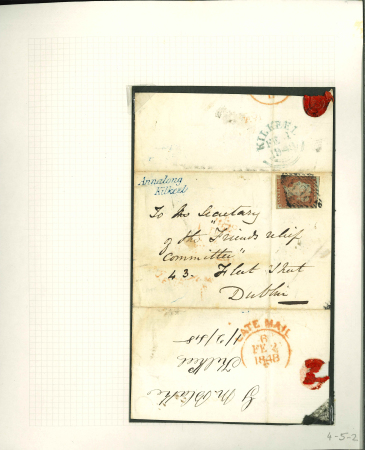 KILKEEL
FE
Annalong
Kilkeel
To the Secretary
of the "Friends relief
Committee"
43. Fleet Street
Dublin
LATE MAIL
6
FE 2
1848
Kilkeel
4-5-2